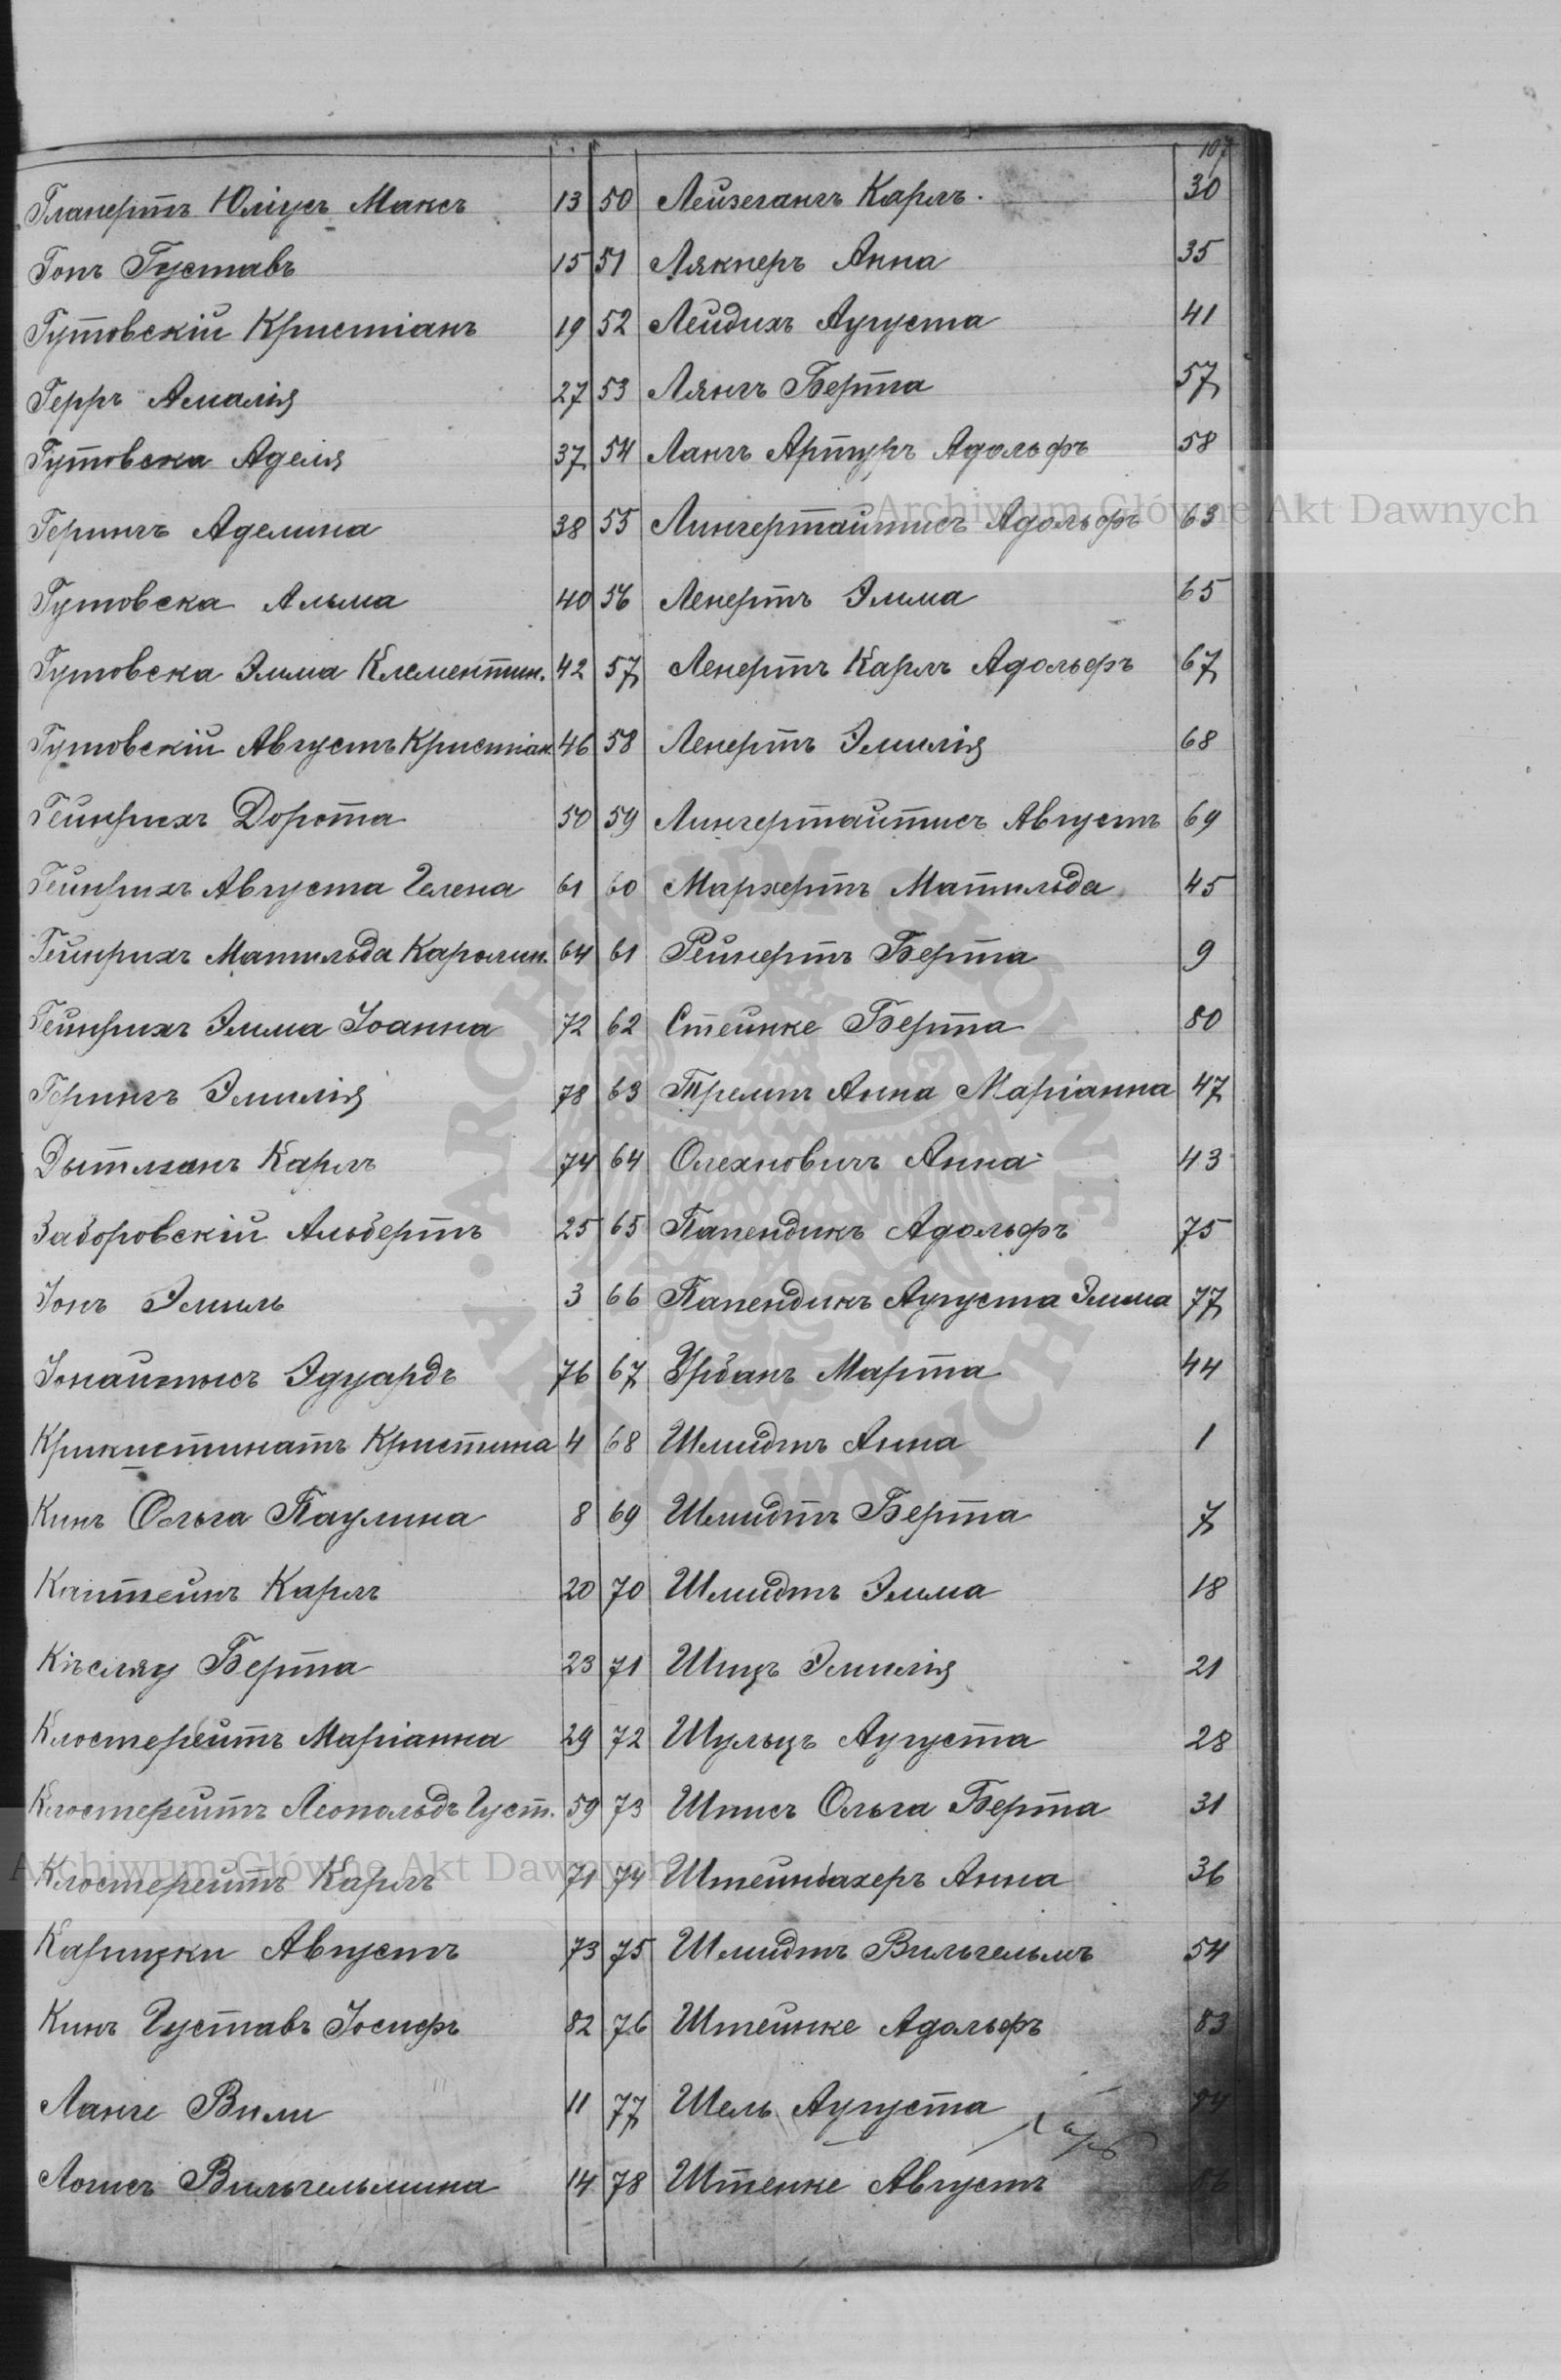 107
Гланертъ Юліусъ Максъ 13
Гопъ Густавъ 15
Гутовскій Кристіанъ 19
Герръ Амалія 27
Гутовска Аделя 37
Герингъ Аделина 38
Гутовска Альма 40
Гутовска Эмма Клементин. 42
Гутовскій Августъ Кристіан. 46
Гейнрихъ Дорота 50
Гейнрихъ Августа Гелена 61
Гейнрихъ Матильда Каролин. 64
Гейнрихъ Эмма Іоанна 72
Герингъ Эмилія 78
Дытманъ Карлъ 74
Заборовскій Альбертъ 25
Іонъ Эмиль 3
Іонайтысъ Эдуардъ 76
Крикистинатъ Кристина 4
Кинъ Ольга Паулина 8
Каптейнъ Карлъ 20
Кіъсляу Берта 23
Клостерейтъ Маріанна 29
Клостерейтъ Леопольдъ Густ. 59
Клостерейтъ Карлъ 71
Карицки Августъ 73
Кинъ Густавъ Іосифъ 82
Ланге Вили 11
Логисъ Вильгельмина 14
50 Лейзегангъ Карлъ. 30
51 Лякнеръ Анна 35
52 Лейдихъ Аугуста 41
53 Лянгъ Берта 57
54 Лангъ Артуръ Адольфъ 58
55 Лингертайтисъ Адольфъ 63
56 Ленертъ Эмма 65
57 Ленертъ Карлъ Адольфъ 67
58 Ленертъ Эмилія 68
59 Лингертайтисъ Августъ 69
60 Мархертъ Матильда 45
61 Рейнертъ Берта 9
62 Стейнке Берта 80
63 Тремтъ Анна Маріанна 47
64 Олехновичъ Анна 43
65 Папендикъ Адольфъ 75
66 Папендикъ Аугуста Эмма 77
67 Урбанъ Марта 44
68 Шмидтъ Анна 1
69 Шмидтъ Берта 7
70 Шмидтъ Эмма 18
71 Шицъ Эмилія 21
72 Шульцъ Аугуста 28
73 Шписъ Ольга Берта 31
74 Штейнбахеръ Анна 36
75 Шмидтъ Вильгельмъ 54
76 Штейнке Адольфъ 83
77 Шель Аугуста
78 Штенке Августъ
Archiwum Główne Akt Dawnych
Archiwum Główne Akt Dawnych
ARCHIWUM GŁÓWNE AKT DAWNYCH